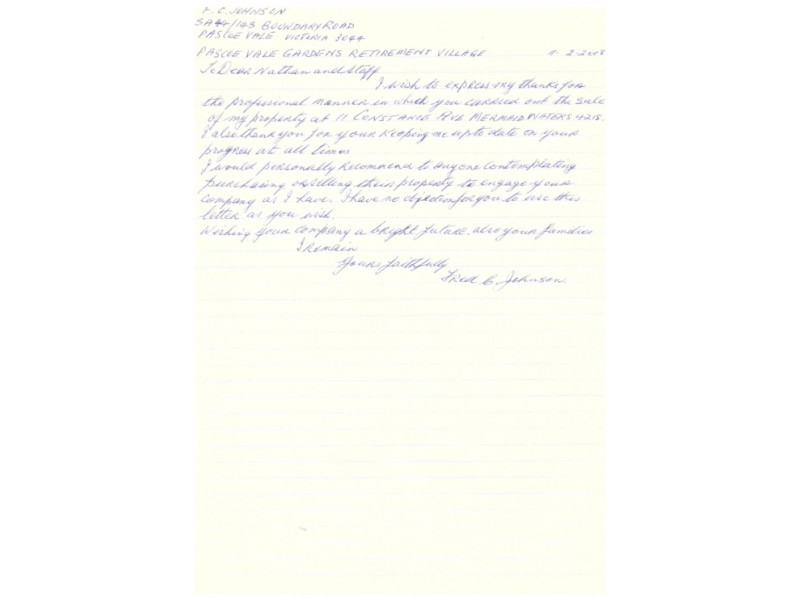 F. C. JOHNSON
SA44/143 BOUNDARY ROAD
PASCOE VALE VICTORIA 3044
PASCOE VALE GARDENS RETIREMENT VILLAGE 2-2008
To Dear Nathan and Staff
I wish to express my thanks for
the professional manner in which you carried out the sale
of my property at 11 CONSTANCE AVE MERMAID WATERS 4218.
I also thank you for your keeping me up to date on your
progress at all times
I would personally recommend to anyone contemplating
purchasing or selling their property to engage your
company as I have. I have no objection for you to use this
letter as you wish.
Wishing your company a bright future, also your families
I remain
Yours faithfully
Fred C. Johnson.